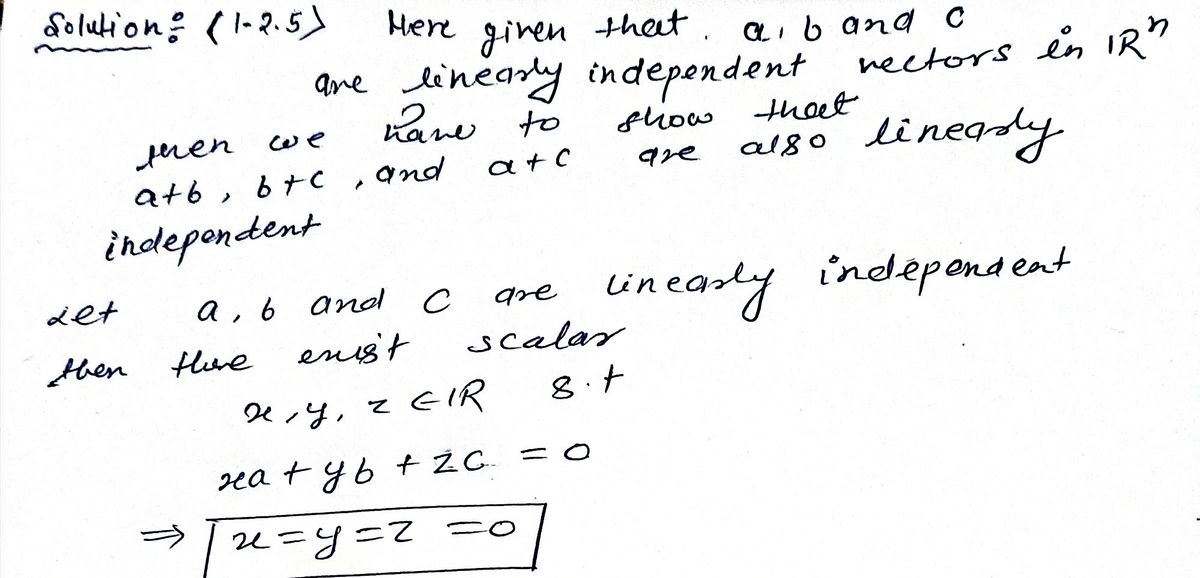 Solution: (1-2.5) Here given that. a, b and c
are linearly independent vectors in IRⁿ
then we have to show that
a+b, b+c, and a+c are also linearly
independent
Let a, b and c are linearly independent
then there exist scalar
x, y, z ∈ IR s.t
xa + yb + zc = 0
⇒ x = y = z = 0